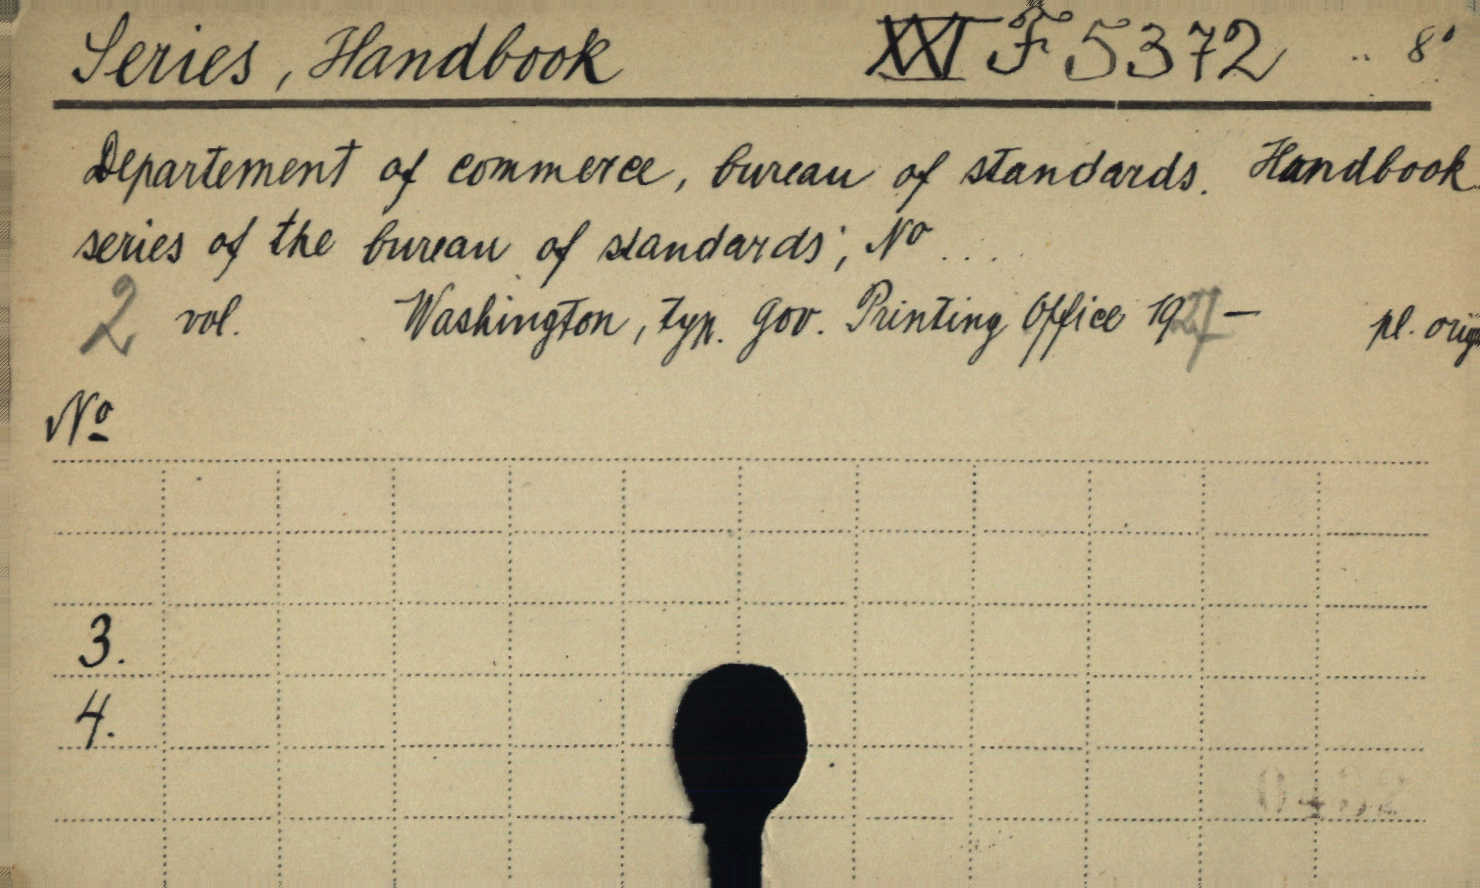 Series, Handbook XXI F 5372 .. 8°
Departement of commerce, bureau of standards. Handbook
series of the bureau of standards; No ...
2 vol. Washington, typ. Gov. Printing Office 1927 — pl. orig
No
3.
4.